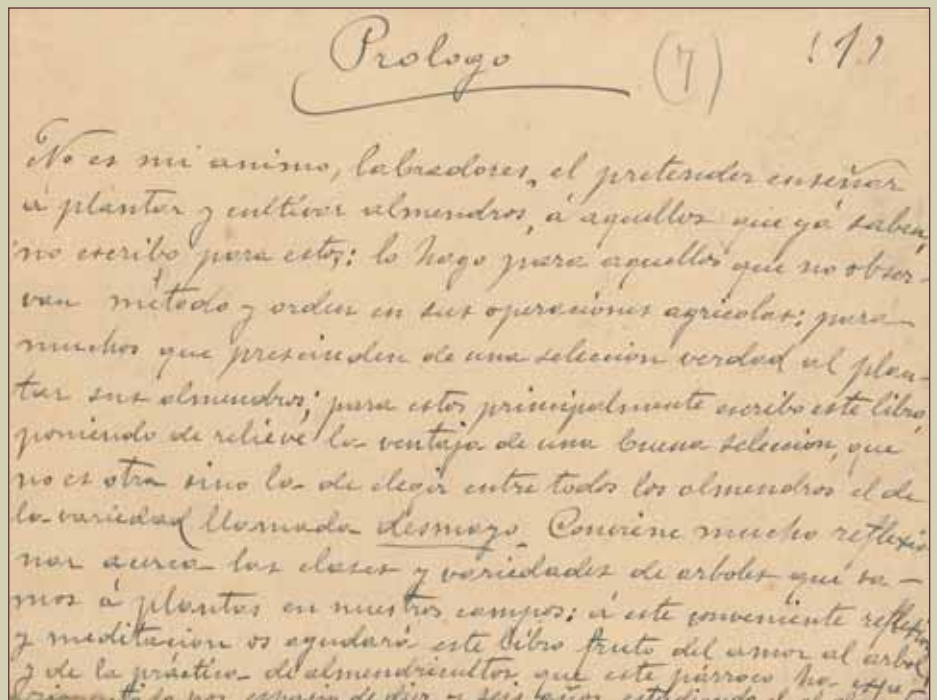 Prologo (7) (1)
No es mi animo, labradores, el pretender enseñar
á plantar y cultivar almendros, á aquellos que yá saben,
no escribo para estos: lo hago para aquellos que no obser-
van método y orden en sus operaciones agricolas: para
muchos que prescinden de una selección verdad al plan-
tar sus almendros; para estos principalmente escribo este libro,
poniendo de relieve la ventaja de una buena selección, que
no es otra sino la de elegir entre todos los almendros el de
la variedad llamada desmayo. Conviene mucho reflexio
nar acerca las clases y variedades de arboles que va-
mos á plantar en nuestros campos: á este conveniente reflexion
y meditacion os ayudará este libro fruto del amor al arbol
y de la práctica de almendricultor que este párroco ha expe
rimentado por espacio de diez y seis años, estudiando el